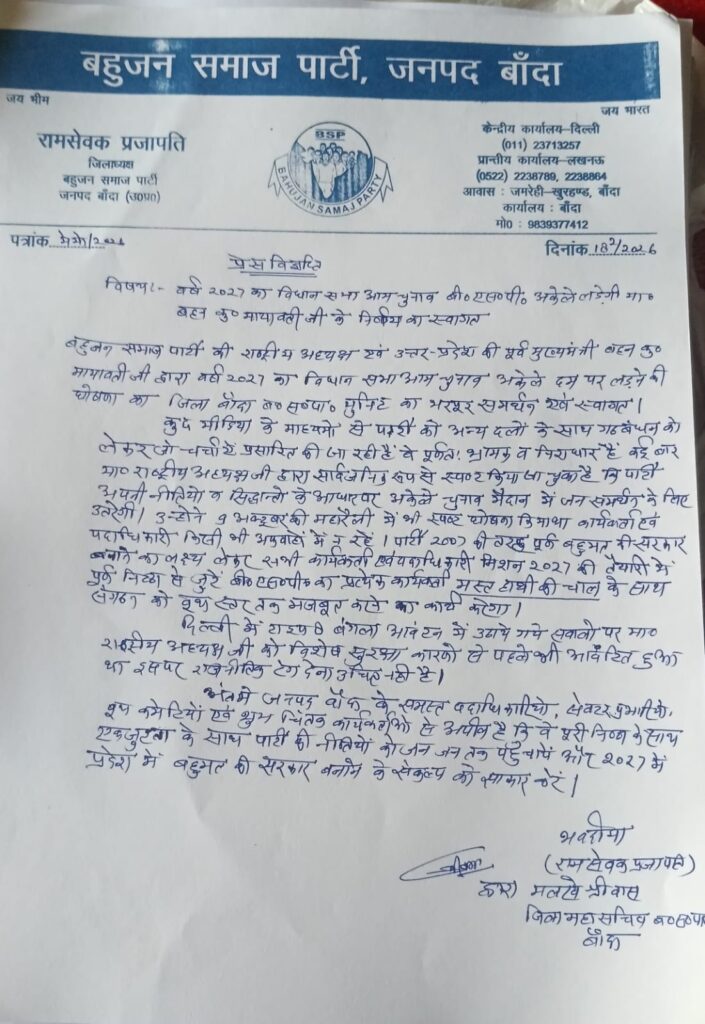 बहुजन समाज पार्टी, जनपद बाँदा
जय भीम
जय भारत
रामसेवक प्रजापति
जिलाध्यक्ष
बहुजन समाज पार्टी
जनपद बाँदा (उ०प्र०)
BSP
BAHUJAN SAMAJ PARTY
केन्द्रीय कार्यालय–दिल्ली
(011) 23713257
प्रान्तीय कार्यालय–लखनऊ
(0522) 2238789, 2238864
आवास : जमरेही–खुरहण्ड, बाँदा
कार्यालय : बाँदा
मो० : 9839377412
पत्रांक मेमो/2026
दिनांक 18/2/2026
प्रेस विज्ञप्ति
विषय:- वर्ष 2027 का विधान सभा आम चुनाव बी०एस०पी० अकेले लड़ेगी मा०
बहन कु० मायावती जी के निर्णय का स्वागत
बहुजन समाज पार्टी की राष्ट्रीय अध्यक्ष एवं उत्तर-प्रदेश की पूर्व मुख्यमंत्री बहन कु०
मायावती जी द्वारा वर्ष 2027 का विधान सभा आम चुनाव अकेले दम पर लड़ने की
घोषणा का जिला बाँदा ब०स०पा० यूनिट का भरपूर समर्थन एवं स्वागत।
कुछ मीडिया के माध्यमो से पार्टी को अन्य दलो के साथ गठबंधन को
लेकर जो चर्चायें प्रसारित की जा रही है वे पूर्णतः भ्रामक व निराधार हैं कई बार
मा० राष्ट्रीय अध्यक्ष जी द्वारा सार्वजनिक रूप से स्पष्ट किया जा चुका है कि पार्टी
अपनी नीतियो व सिद्धान्तो के आधार पर अकेले चुनाव मैदान में जन समर्थन के लिए
उतरेगी। उन्होने 9 अक्टूबर की महारैली में भी स्पष्ट घोषणा किया था कार्यकर्ता एवं
पदाधिकारी किसी भी अफवाहो में न रहे। पार्टी 2007 की तरह पूर्ण बहुमत की सरकार
बनाने का लक्ष्य लेकर सभी कार्यकर्ता एवं पदाधिकारी मिशन 2027 की तैयारी में
पूर्ण निष्ठा से जुटें बी०एस०पी० का प्रत्येक कार्यकर्ता मस्त हाथी की चाल के साथ
संगठन को बूथ स्तर तक मजबूत करने का कार्य करेगा।
दिल्ली में टाइप 8 बंगला आवंटन में उठाये गये सवालो पर मा०
राष्ट्रीय अध्यक्ष जी को विशेष सुरक्षा कारणो से पहले भी आवंटित हुआ
था इसपर राजनीतिक टेग देना उचित नही है।
अंत मे जनपद बाँदा के समस्त पदाधिकारियो, सेक्टर प्रभारियो,
बूथ कमेटियों एवं शुभ चिंतक कार्यकर्ताओ से अपील है कि वे पूरी निष्ठा के साथ
एकजुटता के साथ पार्टी की नीतियो को जन जन तक पहुँचायें और 2027 में
प्रदेश में बहुमत की सरकार बनाने के संकल्प को साकार करें।
भवदीय
(रामसेवक प्रजापति)
द्वारा श्रीवास
जिला महासचिव ब०स०पा
बाँदा